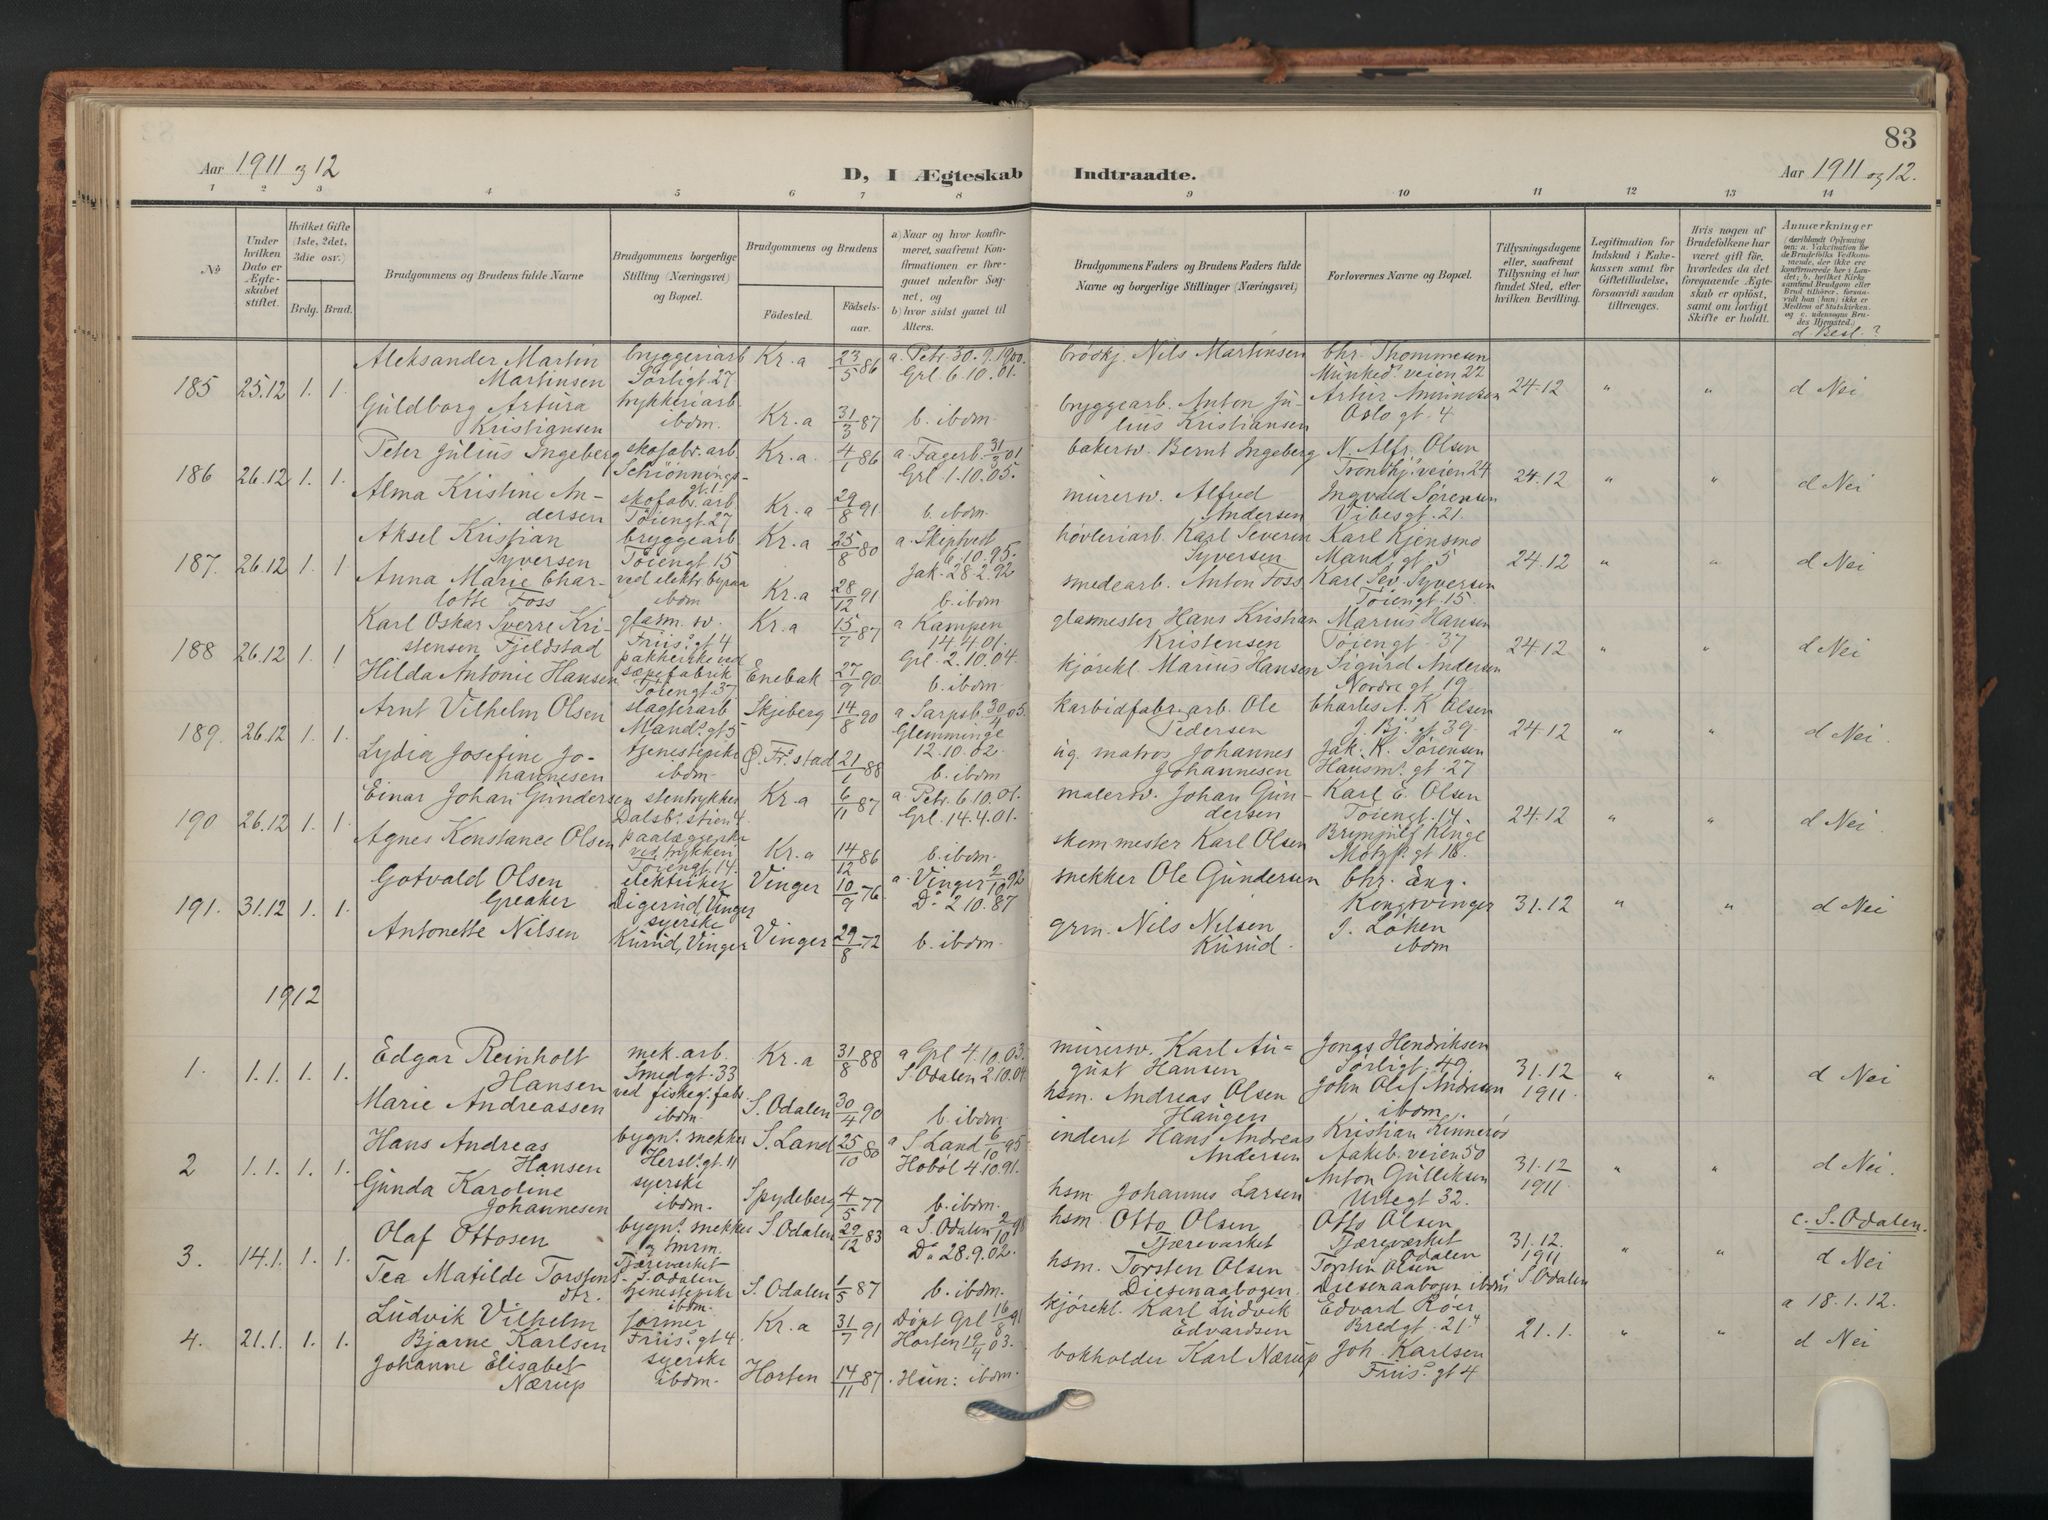 83
Aar 1911 og 12
D, I Ægteskab Indtraadte.
Aar 1911 og 12.
1 2 3 4 5 6 7 8 9 10 11 12 13 14
No
Under hvilken Dato er Ægteskabet stiftet.
Hvilket Gifte (1ste, 2det, 3die osv.)
Brdg. Brud.
Brudgommens og Brudens fulde Navne
Brudgommens borgerlige Stilling (Næringsvei) og Bopæl.
Brudgommens og Brudens
Fødested. Fødselsaar.
a) Naar og hvor konfirmeret, saafremt Konfirmationen er foregaaet udenfor Sognet, og
b) hvor sidst gaaet til Alters.
Brudgommens Faders og Brudens Faders fulde Navne og borgerlige Stillinger (Næringsvei)
Forlovernes Navne og Bopæl.
Tillysningsdagene eller, saafremt Tillysning ei har fundet Sted, efter hvilken Bevilling.
Legitimation for Indskud i Enkekassen samt for Giftetilladelse, forsaavidt saadan tiltrænges.
Hvis nogen af Brudefolkene har været gift før, hvorledes da det foregaaende Ægteskab er opløst, samt om lovligt Skifte er holdt.
Anmærkninger
(deriblandt Oplysning om: a. Vakcination for de Brudefolks Vedkommende, der ikke ere konfirmerede her i Landet; b. hvilket Kirkesamfund Brudgom eller Brud tilhører, forsaavidt han (hun) ikke er Medlem af Statskirken. og c. udensogns Brudes Hjemsted.)
d Besl.?
185 25.12 1. 1. Aleksander Martin Martinsen bryggeriarb Sørligt. 27 Kr.a 23/5 86 a. Petr. 30.9.1900. Grl. 6.10.01. brødkj. Nils Martinsen Chr. Thommesen Munked. veien 22 24.12 " " d Nei
Guldborg Artura Kristiansen trykkeriarb ibdm. Kr.a 31/3 87 b. ibdm. bryggearb. Anton Julius Kristiansen Artur Amundsen Oslo gt. 4
186 26.12 1. 1. Peter Julius Ingeberg skofabr. arb. Schiønnings gt. 1 Kr.a. 4/1 86 a. Fagerb. 31/3 01 Grl 1.10.05. bakersv. Bernt Ingeberg N. Alfr. Olsen Trondhj. veien 24 24.12 " " d Nei
Alma Kristine Andersen skofabr. arb Tøiengt. 27 Kr.a 29/8 91 b. ibdm. murersv. Alfred Andersen Ingvald Sørensen Vibesgt. 21.
187. 26.12 1. 1 Aksel Kristian Syversen bryggearb Tøiengt. 15 Kr.a 25/8 80 a. Skiptvedt 6.10.95. Jak. 28.2.92 høvleriarb. Karl Severin Syversen Karl Kjensmo Mands gt. 5 24.12 " " d Nei
Anna Marie Charlotte Foss ved elektr. byraa ibdm Kr.a 28/12 91 b. ibdm smedearb. Anton Foss Karl Sev. Syversen Tøiengt. 15.
188 26.12 1. 1 Karl Oskar Sverre Kristensen Fjeldstad glasm. sv. Friis' gt 4 Kr.a 15/7 87 a Kampen 14.4.01. Grl. 2.10.04. glasmester Hans Kristian Kristensen Marius Hansen Tøiengt. 37 24.12 " " d Nei
Hilda Antonie Hansen pakkerske ved sæpefabrik Tøiengt. 37 Enebak 27/9 90 b. ibdm kjørekl. Marius Hansen Sigurd Andersen Nordre gt 19
189. 26.12 1. 1. Arnt Vilhelm Olsen slagterarb Mands. gt 5 Skjeberg 14/8 90 a. Sarpsb. 30/4 05. Glemminge 12.10.02. Karbidfabr. arb. Ole Pedersen Charles A. K Olsen J. Bj. gt. 39 24.12 " " d Nei.
Lydia Josefine Johannesen tjenestepike ibdm. Ø. Fr. stad 21/1 88 b. ibdm ug. matros Johannes Johannesen Jak. K. Sørensen Hausm. gt. 27
190 26.12 1. 1. Einar Johan Gundersen stentrykker Dalsb. stien 4. Kr.a 6/11 87 a. Petr. 6.10.01. Grl. 14.4.01. malersv. Johan Gundersen Karl E. Olsen Tøiengt. 14. 24.12 " " d Nei
Agnes Konstance Olsen paalæggerske ved trykken Tøiengt. 14. Kr.a 14/12 86 b. ibdm. skommester Karl Olsen Brynjulf Klüge Motzf. gt 16.
191. 31.12 1. 1. Gotvald Olsen Greaker elektriker Digerud, Vinger Vinger 10/9 76 a. Vinger 2/10 92 Do 2 10.87 snekker Ole Gundersen Chr. Eng. Kongsvinger 31.12 " " d Nei
Antonette Nilsen syerske Kurud, Vinger Vinger 29/8 72 b. ibdm. grm. Nils Nilsen Kurud. J. Løken ibdm
1912
1. 1.1. 1. 1. Edgar Reinholt Hansen mek. arb. Smedgt. 33 Kr.a 31/8 88 a Grl 4.10.03. S. Odalen 2.10.04. murersv. Karl August Hansen Jonas Hendriksen Sørligt. 49. 31.12 1911 " " d Nei
Marie Andreassen ved fiskeg. fabr ibdm. S. Odalen 30/4 90 b. ibdm. hsm. Andreas Olsen Haugen John Olaf Andresen ibdm.
2 1.1. 1. 1. Hans Andreas Hansen bygn. snekker Hersl. gt. 11 S. Land 25/10 80 a S. Land 6/10 95 Hobøl 4.10.91. inderst Hans Andreas Andersen Kristian Kinnerøs Aakeb. veien 50 31.12 1911 " " d Nei.
Gunda Karoline Johannesen syerske ibdm. Spydeberg 4/5 77 b. ibdm. hsm Johannes Larsen Anton Gulliksen Urtegt 32.
3. 14.1. 1. 1. Olaf Ottosen bygn. snekker og tmrm. Tjæreverket S. Odalen S. Odalen 29/12 83 a S. Odalen 2/10 98 Do 28.9.02. hsm. Otto Olsen Tjæreverket Otto Olsen Tjæreverket S. Odalen 31.12. 1911 S. Odalen " " c. S. Odalen. d Nei
Tea Matilde Torstensdtr. tjenestepike ibdm. S. Odalen 1/5 87 b. ibdm. hsm. Torsten Olsen Diesenaabogen Torstin Olsen Diesenaabogen ibdm
4. 21.1. 1. 1. Ludvik Vilhelm Bjarne Karlsen former Friis' gt 4. Kr.a 31/7 91 Døpt Grl 16/8 91 Horten 19/4 03. kjørekl. Karl Ludvik Edvardsen Edvard Roer Bredgt. 21. 21.1. " " a 18.1.12. d Nei
Johanne Elisabet Nærup syerske ibdm. Horten 14/11 87 Hun: ibdm. bokholder Karl Nærup Joh. Karlsen Friis' gt 4